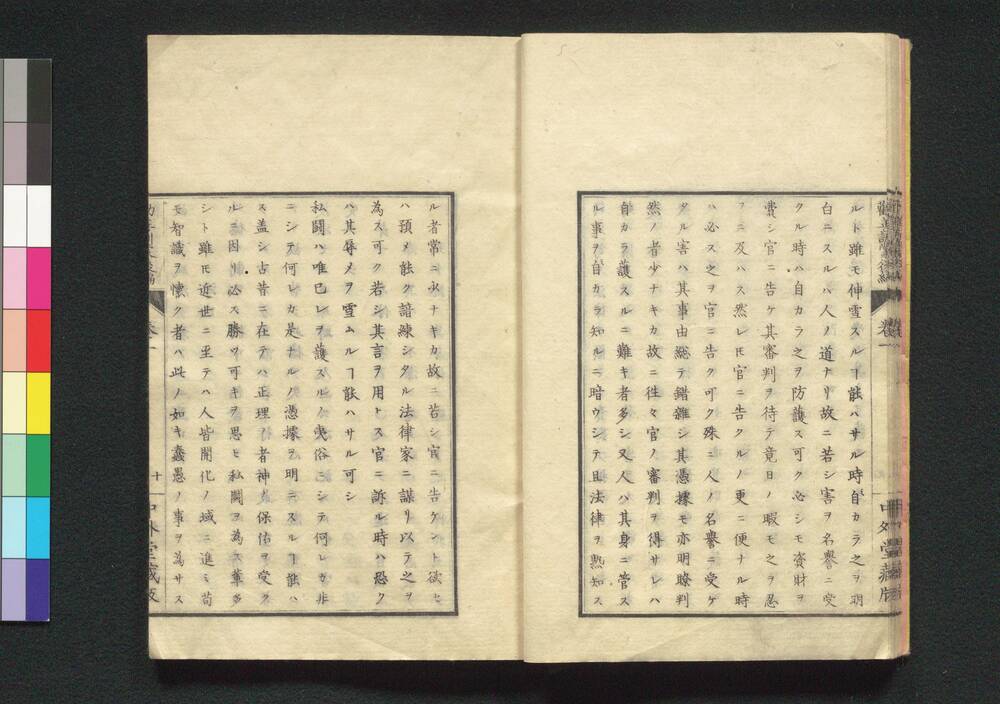 ルト雖モ伸雪スルヿ能ハサル時自カラ之ヲ明
白ニスルハ人ノ道ナリ故ニ若シ害ヲ名譽ニ受
クル時ハ自カラ之ヲ防護ス可ク必シモ資財ヲ
費シ官ニ告ケ其審判ヲ待テ竟日ノ暇モ之ヲ忍
フニ及ハス然レ𪜈官ニ告クルノ更ニ便ナル時
ハ必ス之ヲ官ニ告ク可ク殊ニ人ノ名譽ニ受ケ
タル害ハ其事由総テ錯雜シ其憑據モ亦明瞭判
然ノ者少ナキカ故ニ往々官ノ審判ヲ得サレハ
自カラ護スルニ難キ者多シ又人ハ其身ニ管ス
ル事ヲ自カラ知ルニ暗ウシテ且法律ヲ熟知ス
卷一
中外堂藏版
ル者常ニ少ナキカ故ニ若シ官ニ告ケント欲セ
ハ預メ能ク諳練シタル法律家ニ謀リ以テ之ヲ
為ス可ク若シ其言ヲ用ト ス官ニ訴ル時ハ恐ク
ハ其辱メヲ雪ムルヿ能ハサル可シ
私闘ハ唯已レヲ護スルノ夷俗ニシテ何レカ非
ニシテ何レカ是ナルノ憑據ヲ明ニスルヿ能ハ
ス盖シ古昔ニ在テハ正理ノ者神ノ保佑ヲ受ク
ルニ因リ必ス勝ツ可キヲ思ヒ私闘ヲ為ス輩多
シト雖モ近世ニ至テハ人皆開化ノ域ニ進ミ苟
モ智識ヲ懷ク者ハ此ノ如キ蠢愚ノ事ヲ為サス
十
中外堂藏版